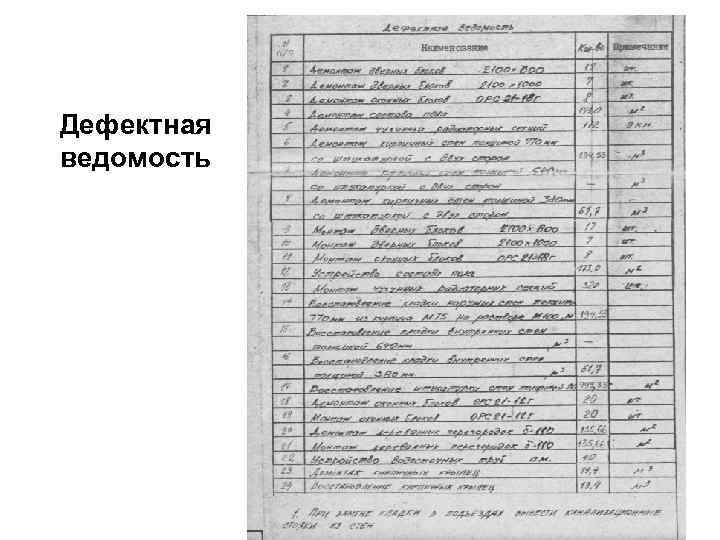 Дефектная
ведомость
Дефектная ведомость
№ п/п Наименование Кол-во Примечание
1 Демонтаж дверных блоков 2100×1500 18 шт.
2 Демонтаж дверных блоков 2100×1000 7 шт.
3 Демонтаж оконных блоков ОРС 21-18г 8 шт.
4 Демонтаж состава пола м²
5 Демонтаж чугунных радиаторных секций
6 Демонтаж кирпичных стен толщиной 770 мм
со штукатуркой с двух сторон 194,55 м³
7 Демонтаж стен толщиной
со штукатуркой с двух сторон — м³
8 Демонтаж кирпичных стен толщиной 380мм
со штукатуркой с двух сторон 61,7 м3
9 Монтаж дверных блоков 2100×1500 17 шт.
10 Монтаж дверных блоков 2100×1000 7 шт.
11 Монтаж оконных блоков ОРС 21-18г 8 шт.
12 Устройство состава пола м²
13 Монтаж чугунных радиаторных секций 320
14 Восстановление кладки наружных стен толщин.
770мм из кирпича М75 на растворе М100 м 194,55
15 Восстановление кладки внутренних стен
толщиной 640мм м³ —
16 Восстановление кладки внутренних стен
толщиной 380мм м³ 61,7
17 Восстановление штукатурки стен м²
18 Демонтаж оконных блоков ОРС 21-12г 20 шт
19 Монтаж оконных блоков ОРС 21-12г 20 шт.
20 Демонтаж деревянных перегородок б-180 135,66 м²
21 Монтаж деревянных перегородок б-180 135,66 м²
22 Устройство водосточных труб п.м. 40
23 Демонтаж кирпичных крылец 19,4 м³
24 Восстановление кирпичных крылец 19,4
1. При замене кладки в подъездах вынести канализационные
стояки из стен